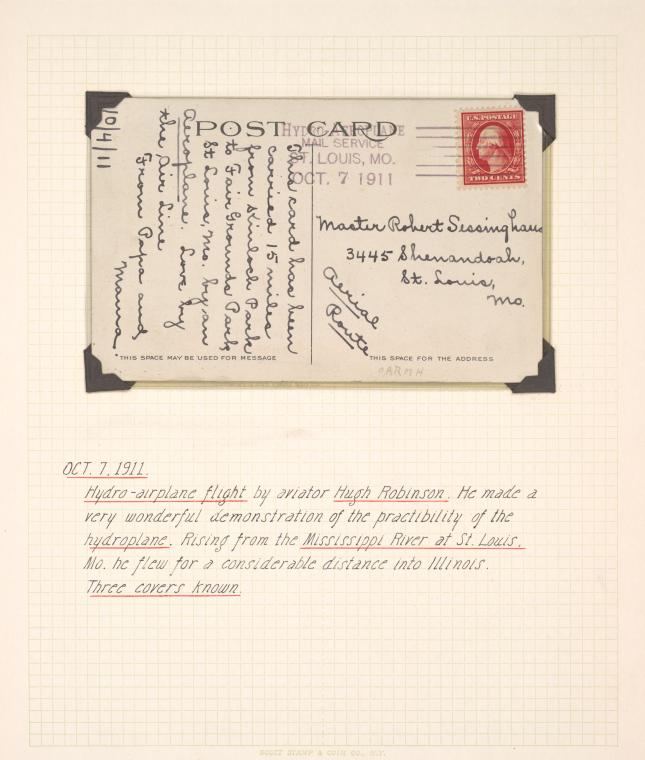 POST CARD
HYDRO-AEROPLANE
MAIL SERVICE
ST. LOUIS, MO.
OCT. 7 1911
U.S. POSTAGE
TWO CENTS
10/4/11
This card has been
carried 15 miles
from Kinloch Park
to Fair Grounds Park
St Louis, Mo. by an
Aeroplane. Love by
the Air Line
From Papa and
Mamma.
Master Robert Sessinghaus
3445 Shenandoah,
St. Louis,
Mo.
Aerial
Route
THIS SPACE MAY BE USED FOR MESSAGE
THIS SPACE FOR THE ADDRESS
OCT. 7, 1911.
Hydro-airplane flight by aviator Hugh Robinson. He made a
very wonderful demonstration of the practibility of the
hydroplane. Rising from the Mississippi River at St. Louis,
Mo. he flew for a considerable distance into Illinois.
Three covers known.
SCOTT STAMP & COIN CO., N.Y.